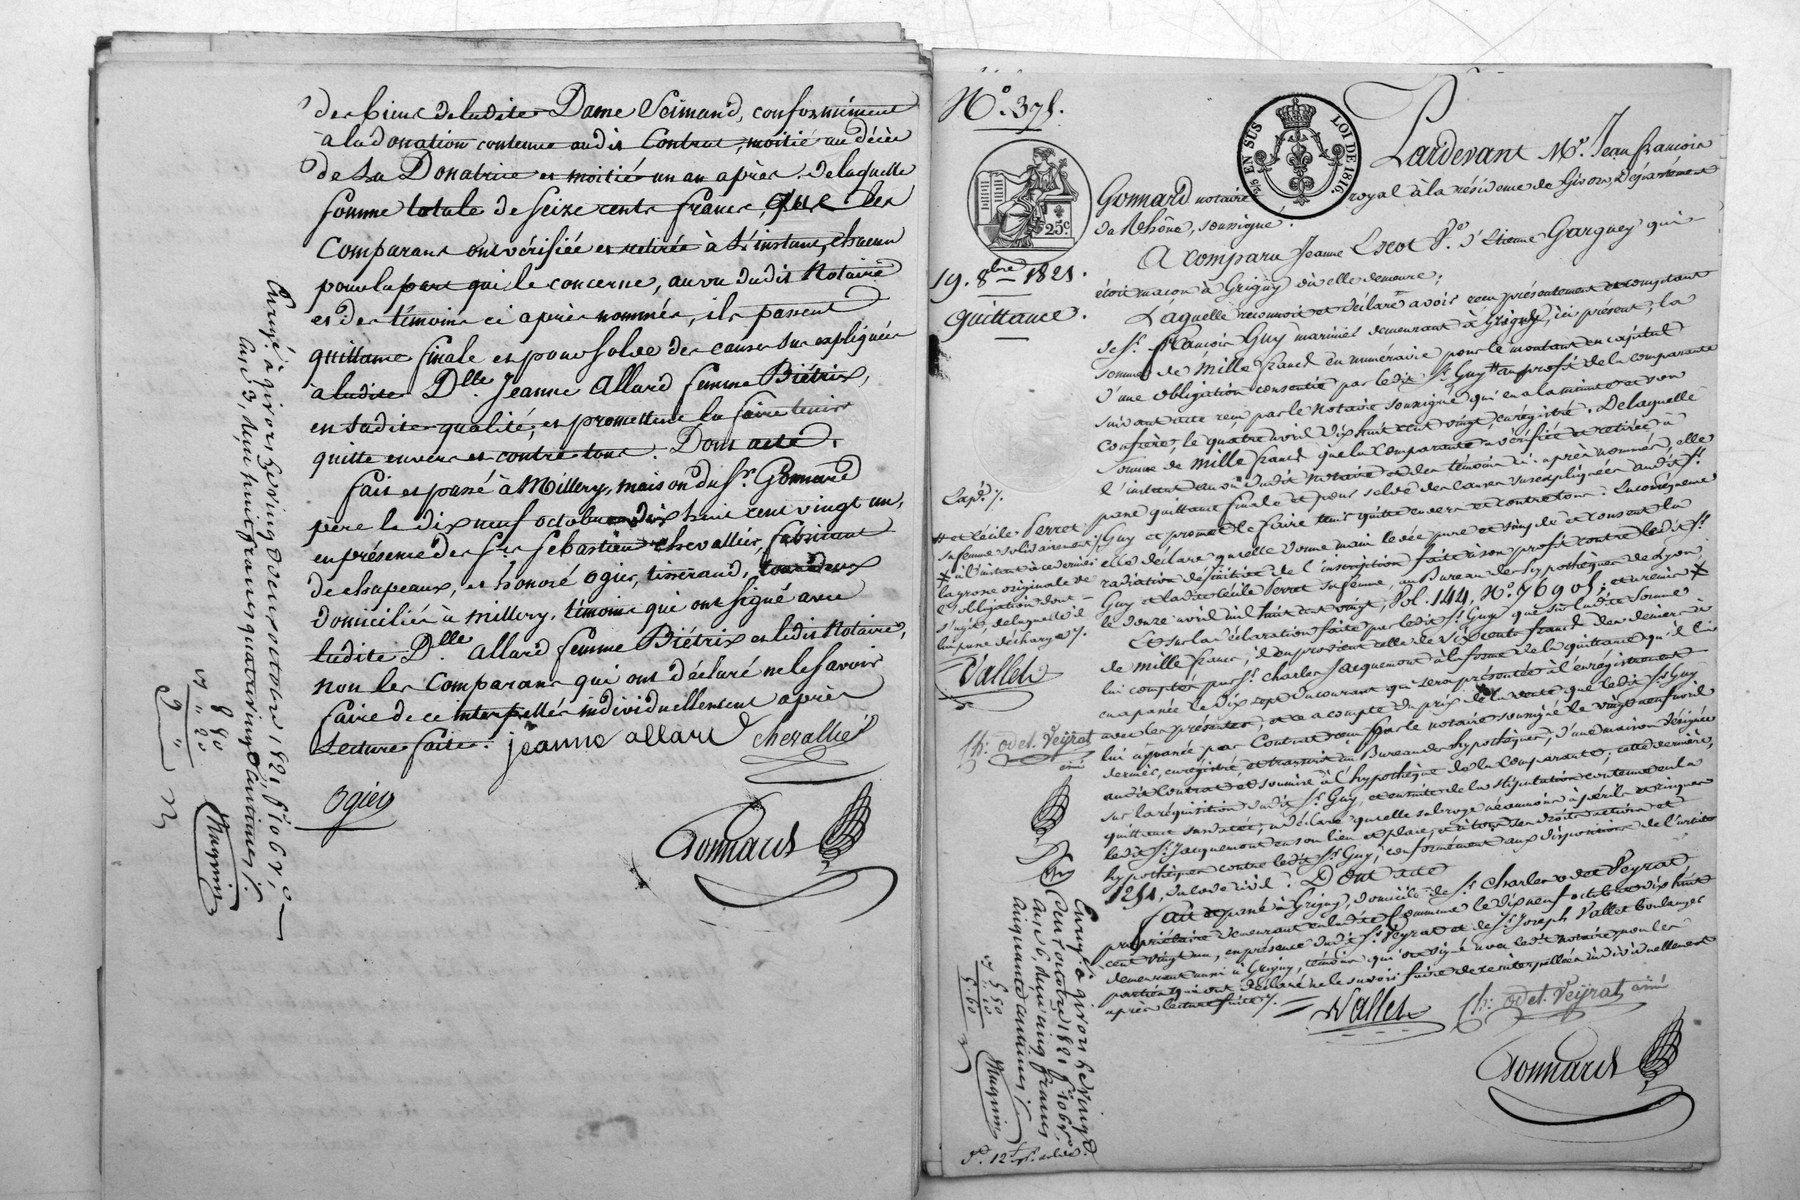 des biens de ladite Dame Seimand, conformément
à la donation contenue audit Contrat, moitié au décès
de la Donatrice et moitié un an après. de laquelle
somme totale de seize cents francs, que les
Comparans ont vérifiée et retirée à l'instant, chacun
pour la part qui le concerne, au vu dudit Notaire
et des témoins ci après nommés, ils passent
quittance finale et pour solde des causes sus expliquées
à ladite Dlle Jeanne Allard femme Biétrix,
en sadite qualité, et promettent la faire tenir
quitte envers et contre tous. Dont acte.
fait et passé à Millery, maison du Sr. Gonnard
père le dix neuf octobre dix huit cent vingt un,
en présence des Srs Sébastien chevallier, fabricant
de chapeaux, et honoré Ogier, tisserand, tous deux
domiciliés à Millery, témoins qui ont signé avec
ladite Dlle Allard femme Biétrix et ledit Notaire,
non les Comparans qui ont déclaré ne le savoir
faire de ce interpellés individuellement après
Lecture faite. jeanne allard chevallier
Ogier
Gonnard
Enregé à givors le vingt deux octobre 1821, fo 106 vo, co
case 3, reçu huit francs quatre vingt centimes
8 80
9 "
Muguin
No. 375.
5/6 EN SUS LOI DE 1816.
25c
19. 8bre 1821.
quittance.
Pardevant Mr. Jean françois
Gonnard notaire royal à la résidence de Givors, Département
du Rhône, soussigné.
A comparu Jeanne Escot Ve. d'Etienne Garguey qui
étoit maçon à Grigny où elle demeure;
Laquelle reconnoit et déclare avoir reçu présentement et comptant
de Sr. francois Guy marinier demeurant à Grigny, ici présent, la
somme de Mille francs en numéraire pour le montant en capital
d'une obligation consentie par ledit Sr. Guy # au profit de la comparante
suivant acte reçu par le Notaire soussigné qui en a la minute et son
Confrère, le quatre avril dix huit cent vingt, enregistré. De laquelle
Somme de Mille francs que la Comparante a vérifiée et retirée à
l'instant au vu dudit Notaire et des témoins ci-après nommés, elle
passe quittance finale et pour solde des causes sus expliquées audit Sr.
Guy et promet le faire tenir quitte envers et contre tous. En conséquence
elle déclare qu'elle donne main levée pure et simple et consent la
radiation définitive de l'inscription faite à son profit contre ledit Sr.
Guy et ladite Cécile Perret sa femme, au Bureau des hypothèques de Lyon
le douze avril mil huit cent vingt, Vol. 144, No. 769 et remis
Et sur la déclaration faite par ledit Sr. Guy que sur ladite somme
de mille francs, il en provient celle de six cents francs des deniers à
lui comptés par Sr. charles Jacquemont à la forme de la quittance qu'il lui
en a passée le dix sept du courant qui sera présentée à l'enregistrement
avec les présentes, et ce à compte du prix de la vente que ledit Sr. Guy
lui a passée par Contrat reçu par le notaire soussigné le vingt neuf avril
dernier, enregistré, et transcrit au Bureau des hypothèques, d'une maison désignée
audit Contrat et soumise à l'hypothèque de la Comparante; cette dernière,
sur la réquisition dudit Sr. Guy, et ensuite de la stipulation contenue en la
quittance susdatée, a déclaré qu'elle subroge néanmoins à périls et risques
ledit Sr. Jacquemont en son lieu et place, et à tous ses droits actions et
hypothèques contre ledit Sr. Guy, conformément aux dispositions de l'article
1251, du code civil. Dont acte
fait et passé à Grigny, domicile de Sr. Charles odet Veyrat,
propriétaire demeurant en ladite Commune le dix neuf octobre dix huit
cent vingt un, en présence dudit Sr. Veyrat et de Sr. Joseph Vallet boulanger
demeurant aussi à Grigny, témoins qui ont signé avec ledit Notaire, non les
parties qui ont déclaré ne le savoir faire de ce interpellées individuellement
après lecture faite.
Vallet Ch: odet. Veyrat
Gonnard
# et Cécile Perret
sa femme solidairement
à l'instant à ce dernier
la grosse originale de
l'obligation dont
s'agit, de laquelle il
lui passe décharge.
Vallet
Ch: odet. Veyrat
Enregé à givors le vingt
deux octobre 1821 fo 106 vo,
case 6, reçu cinq francs
cinquante centimes
5 50
Muguin